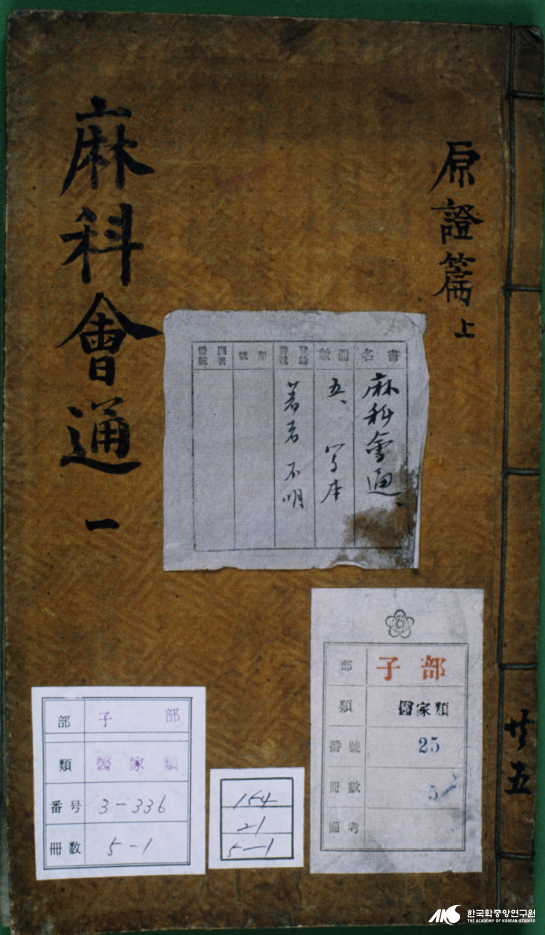 麻科會通 一
原證篇 上
書名 冊數 登錄番號 類號 圖書番號
麻科會通
五、 写本
著者 不明
部 子部
類 醫家類
番號 25
冊數 5
備考
部 子部
類 醫家類
番号 3-336
冊数 5-1
154
21
5-1
廿五
AKS 한국학중앙연구원
THE ACADEMY OF KOREAN STUDIES